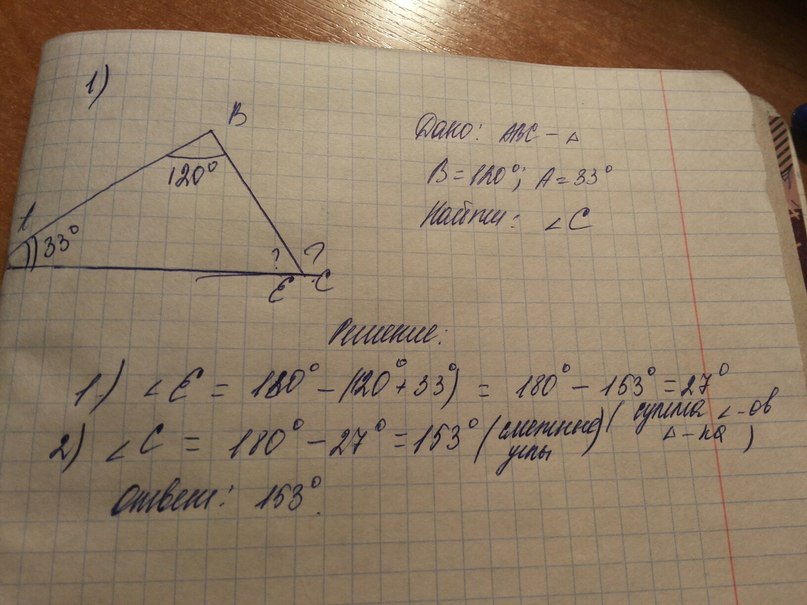 1)
B
120°
A
33°
?
?
E
C
Дано: ABC – △
B = 120°; A = 33°
Найти: ∠C
Решение:
1) ∠E = 180° – (120° + 33°) = 180° – 153° = 27°
(сумма ∠-ов
△-ка)
2) ∠C = 180° – 27° = 153° (смежные
углы)
Ответ: 153°.